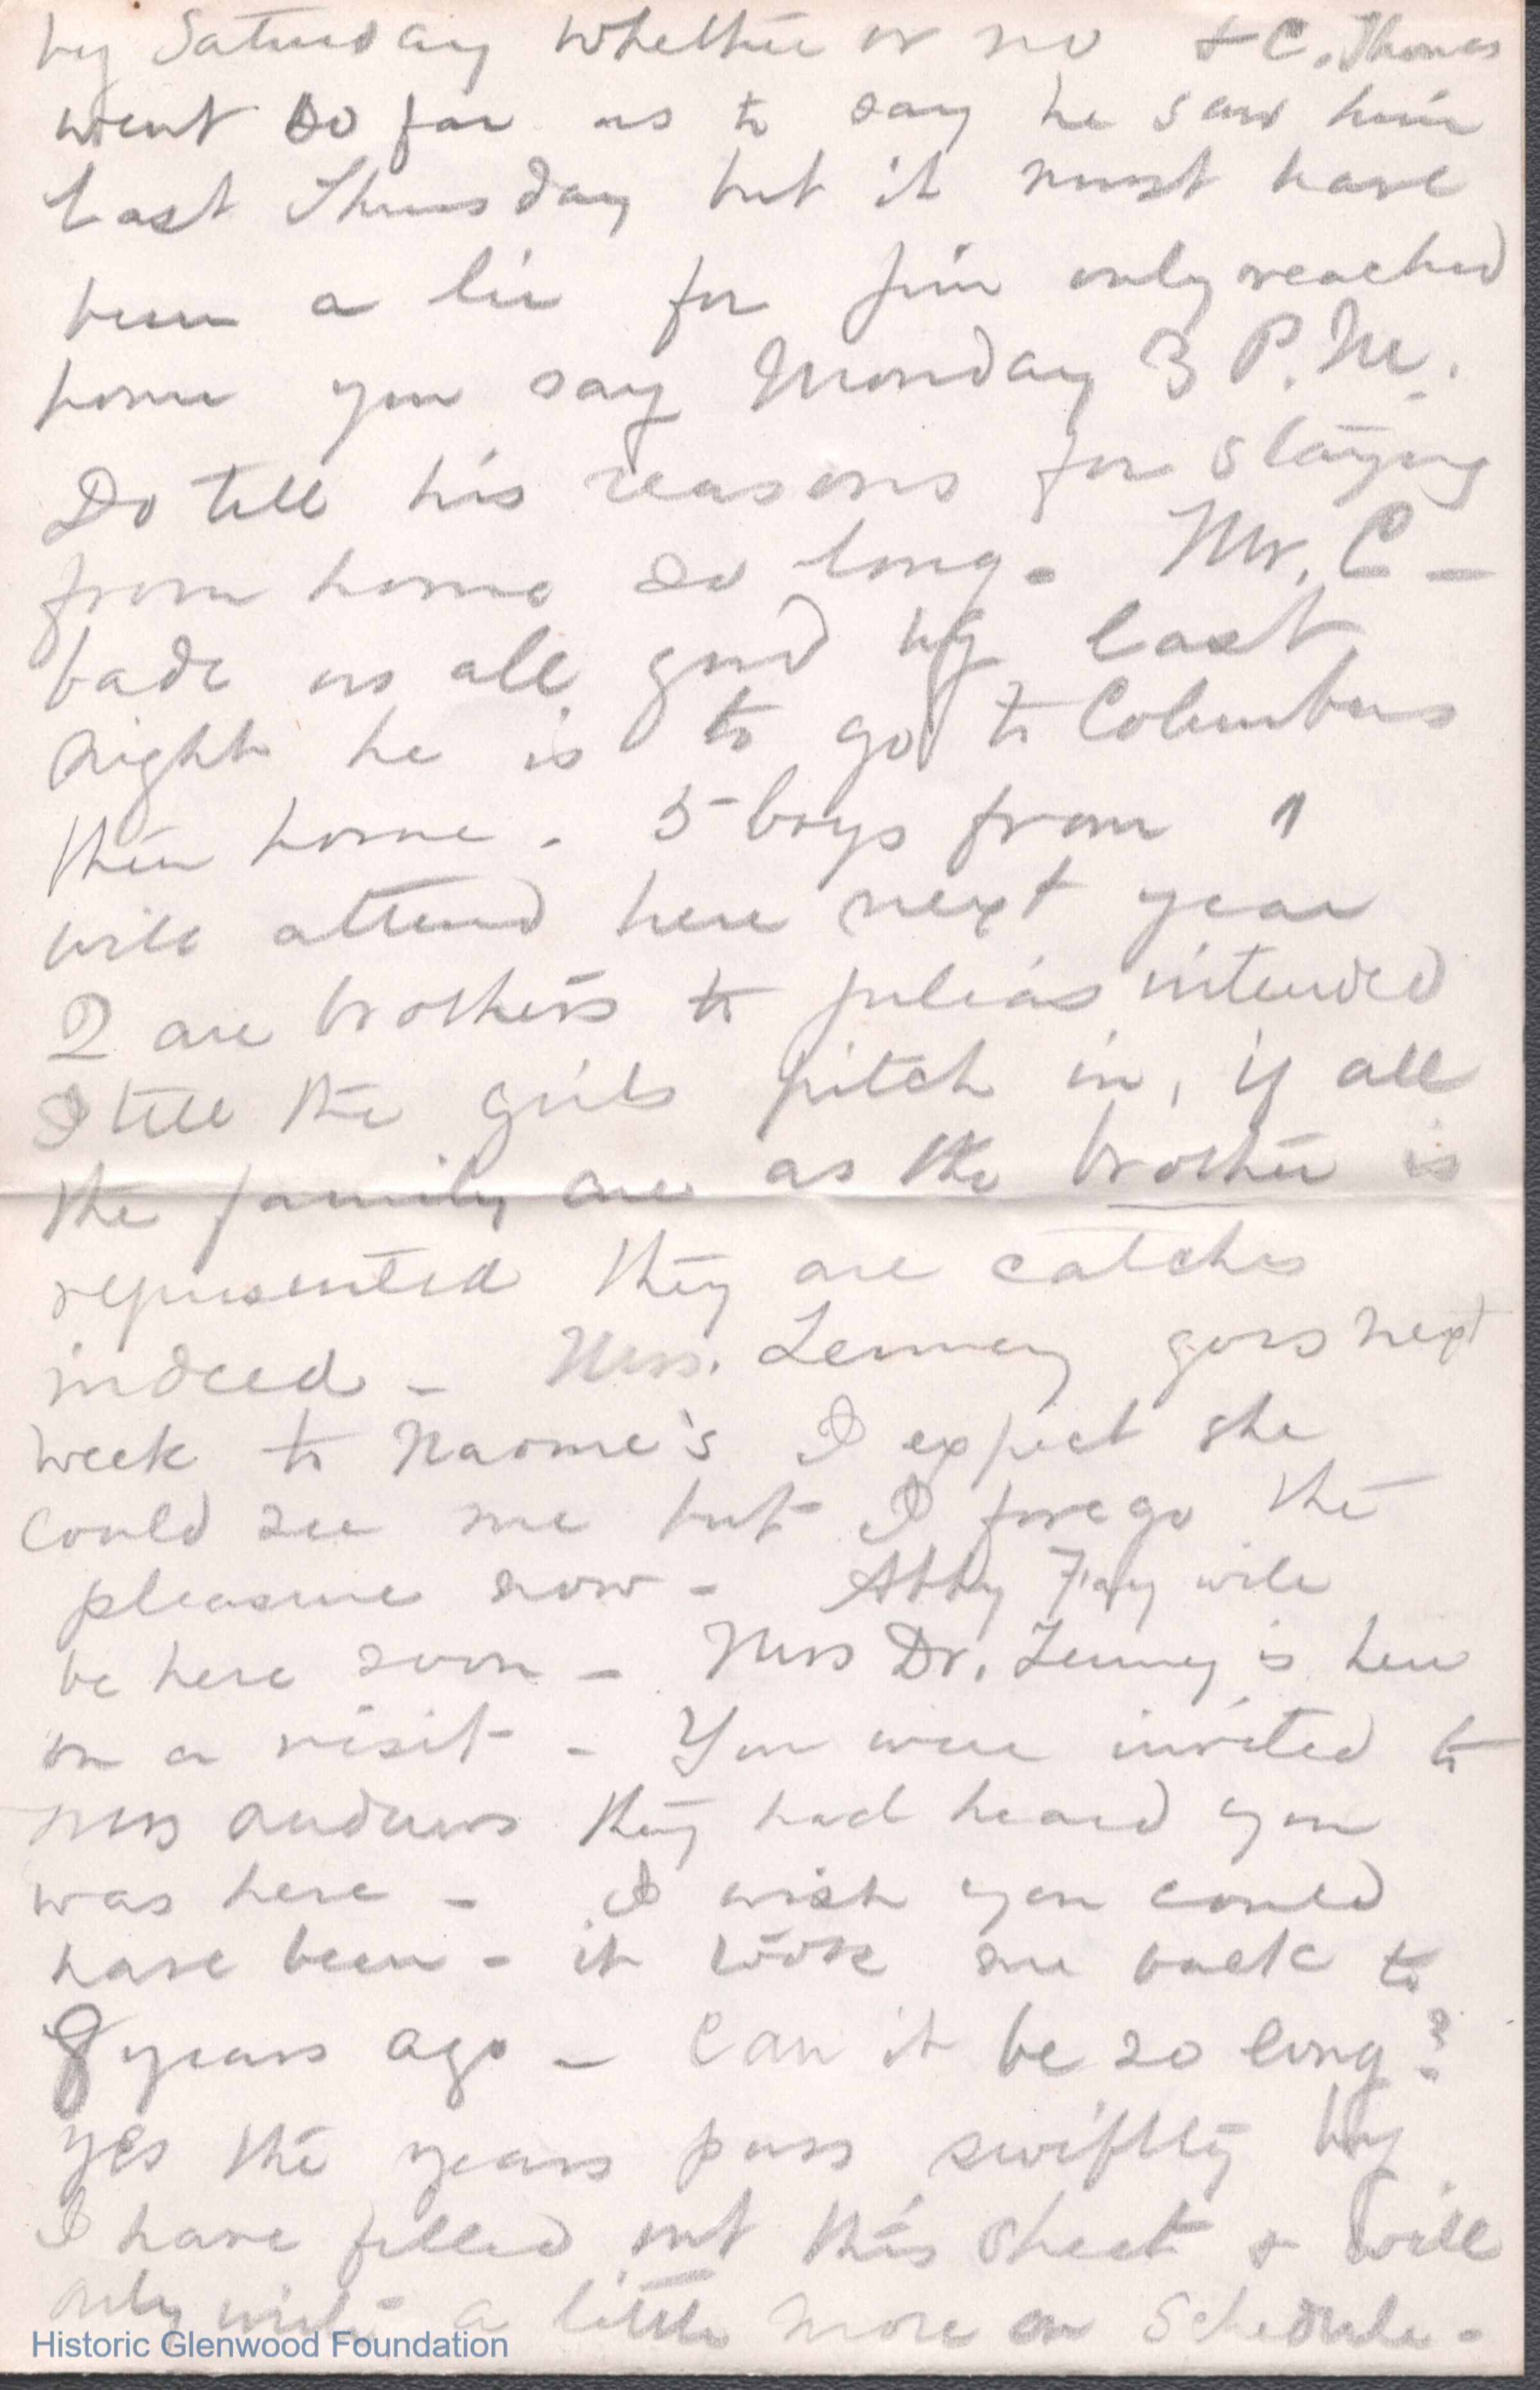 by Saturday whether or no & C. Thomas
went so far as to say he saw him
last Thursday but it must have
been a lie for Jim only reached
home you say Monday 3 P.M.
Do tell his reasons for staying
from home so long - Mr. C -
bade us all good by last
night he is to go to Columbus
then home - 5 boys from "
will attend here next year
2 are brothers to Julia's intended
I tell the girls pitch in, if all
the family are as the brother is
represented they are catches
indeed - Mrs. Tenney goes next
week to Naomie's I expect she
could see me but I forego the
pleasure now - Abby Fay will
be here soon - Mrs Dr. Tenney is here
on a visit - You were invited to
Mrs Andrews they had heard you
was here - I wish you could
have been - it took me back to
8 years ago - Can it be so long?
yes the years pass swiftly by
I have filled out this sheet & will
only write a little more on Schedule -
Historic Glenwood Foundation